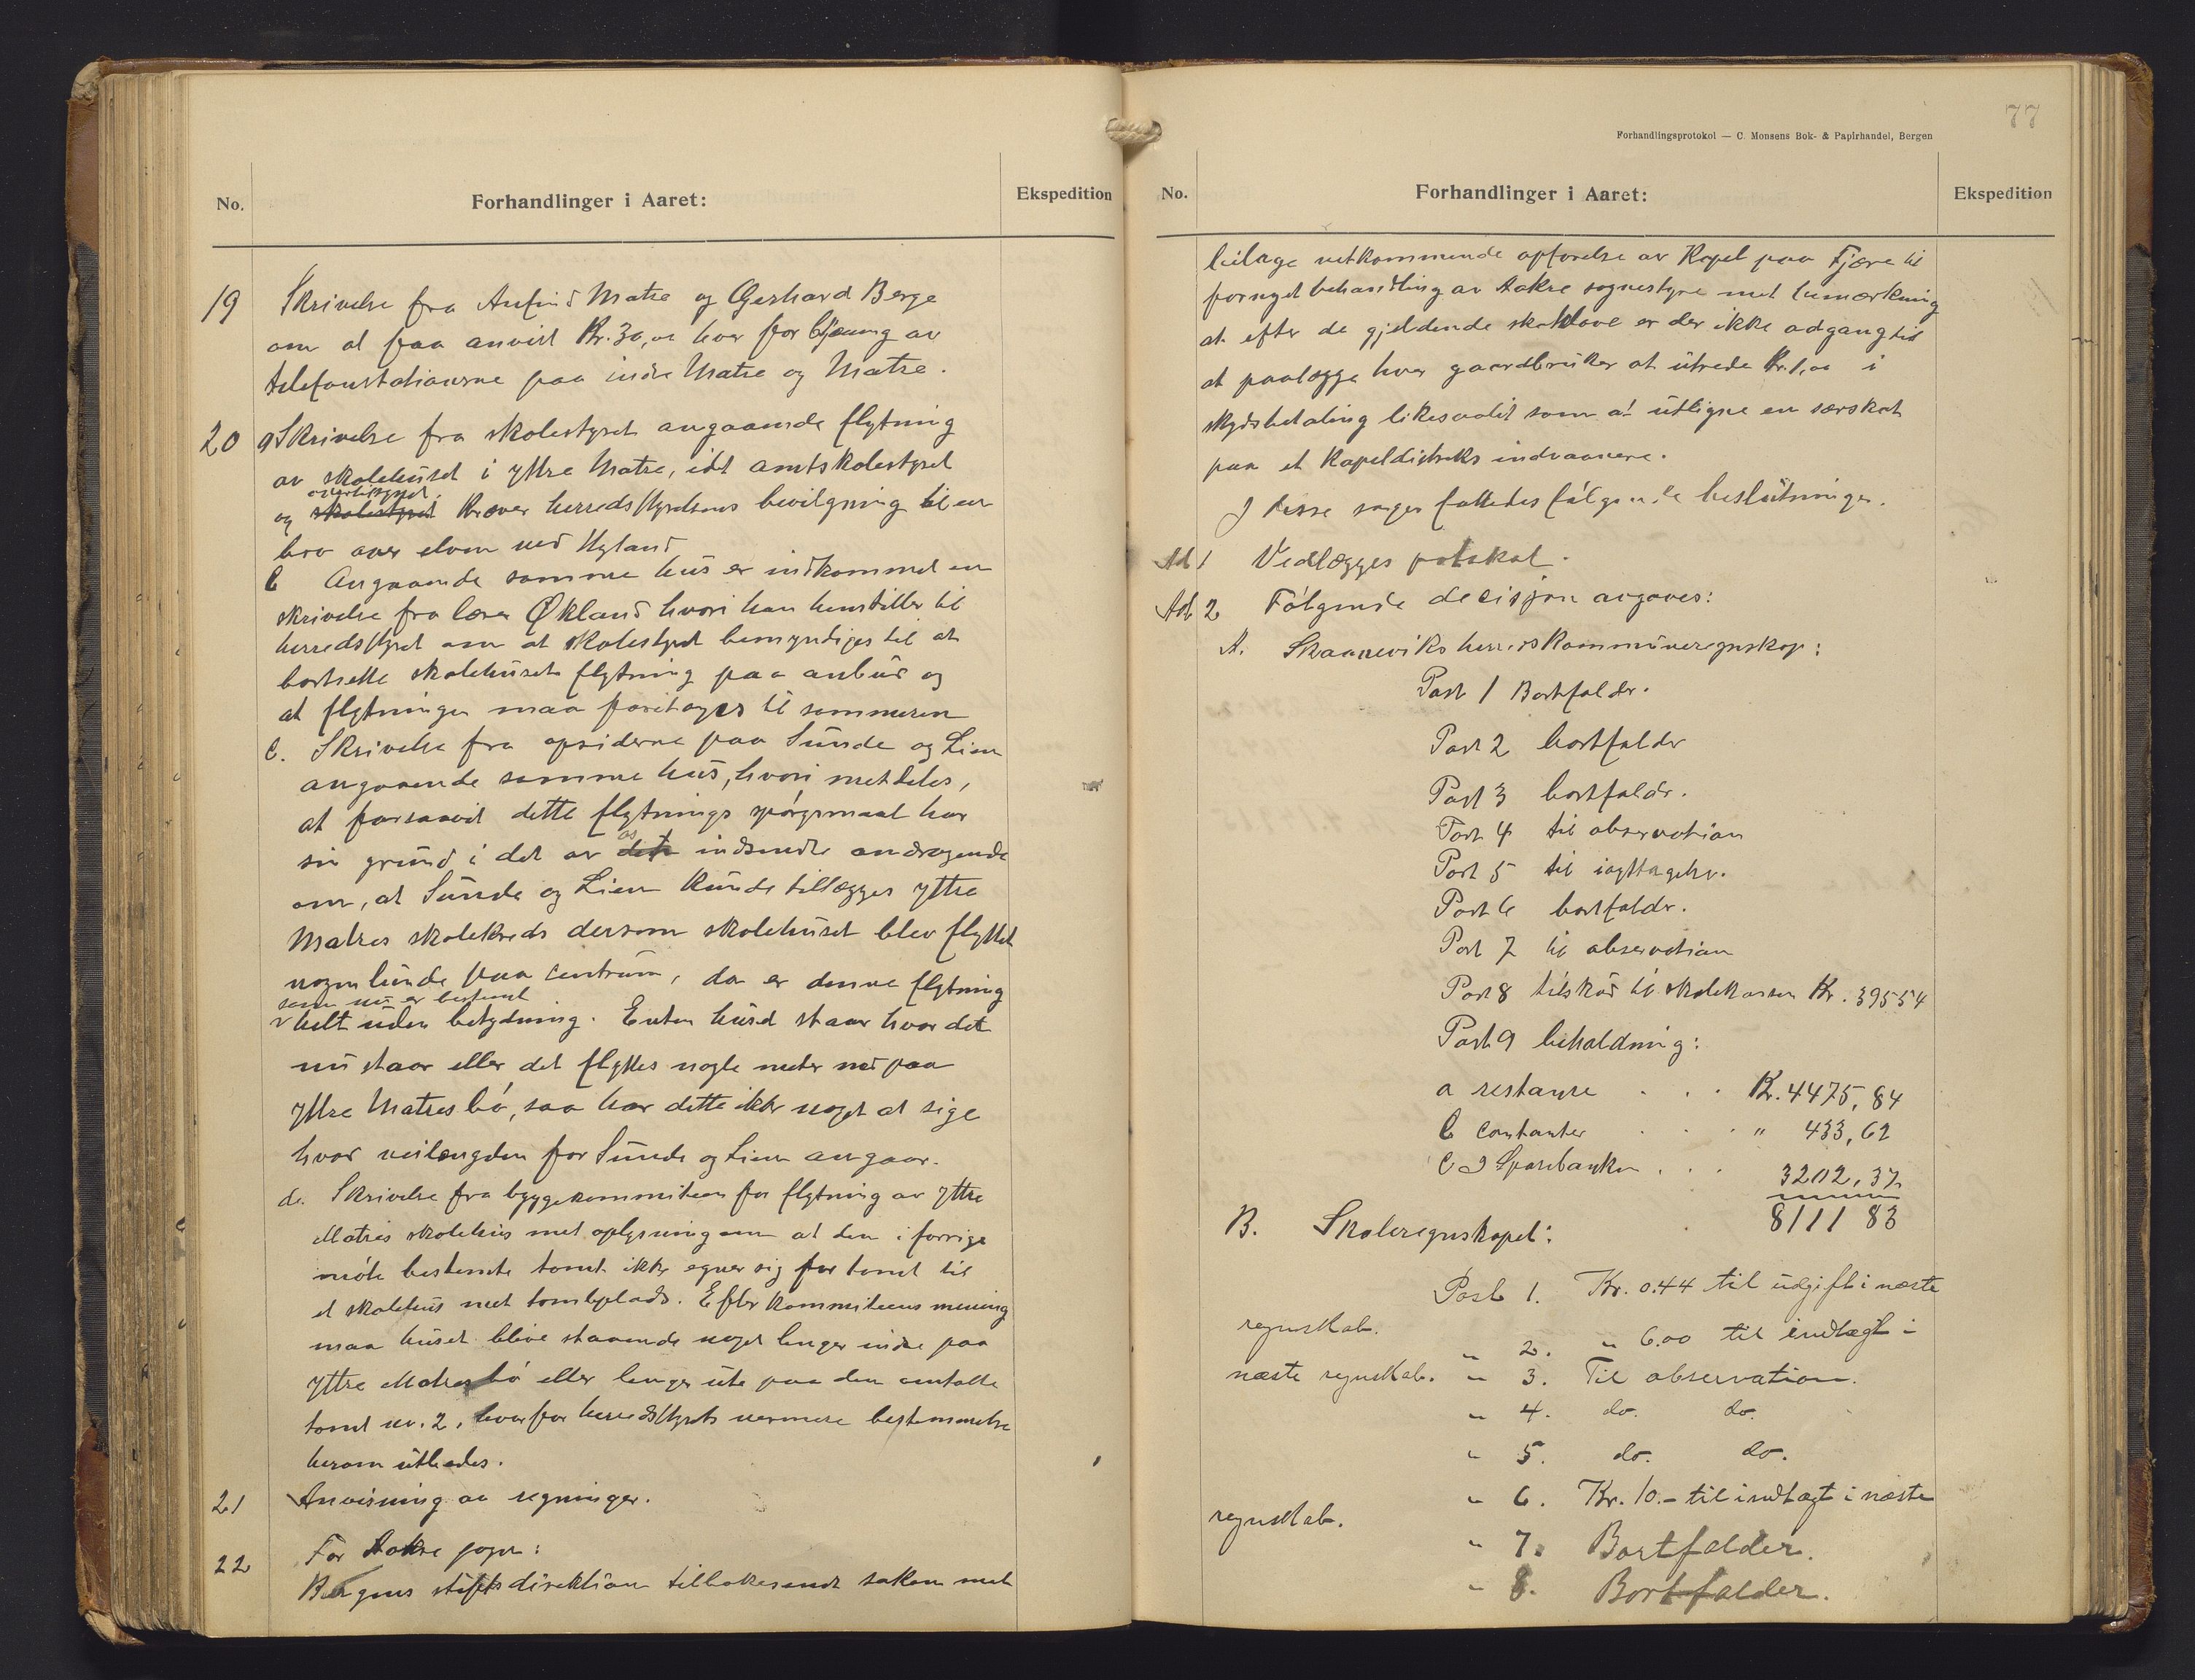 No.
Forhandlinger i Aaret:
Ekspedition
19 Skrivelse fra Anfind Matre og Gerhard Berge
om at faa anvist Kr. 30,oo hver for betjening av
telefonstationerne paa indre Matre og Matre.
20 a Skrivelse fra skolestyret angaaende flytning
av skolehuset i yttre Matre, idet amtskolestyret
overtilsynet
og skolestyret kræver herredsstyrelsens bevilgning til en
bro over elven ved Nyland
b Angaaende samme hus er indkommet en
skrivelse fra lærer Økland hvori han henstiller til
herredsstyret om at skolestyret bemyndiges til at
bortsette skolehusets flytning paa anbud og
at flytningen maa foretages til sommeren
c. Skrivelse fra opsiderne paa Sunde og Lien
angaaende samme hus, hvori meddeles,
at forsaavit dette flytnings spørgsmaal har
os
sin grund i det av dem indsendte andragende
om, at Sunde og Lien kunde tillægges yttre
Matres skolekreds dersom skolehuset blev flyttet
nogenlunde paa centrum, da er denne flytning
som nu er bestemt
helt uden betydning. Enten huset staar hvor det
nu staar eller det flyttes nogle meter ned paa
yttre Matres bø, saa har dette ikke noget at sige
hvad veilængden for Sunde og Lien angaar.
d. Skrivelse fra byggekommiteen for flytning av yttre
Matres skolehus med oplysning om at den i forrige
møte bestemte tomt ikke egner sig for tomt til
et skolehus med tomteplads. Efter kommiteens mening
maa huset blive staaende noget lenger indre paa
yttre Matres bø eller lenger ute paa den omtalte
tomt nr. 2, hvorfor herredsstyrets nærmere bestemmelse
herom utbedes.
21 Anvisning av regninger.
22 For Aakre sogn:
Bergens stiftsdirektion tilbakesendt saken med
77
Forhandlingsprotokol — C. Monsens Bok- & Papirhandel, Bergen
No.
Forhandlinger i Aaret:
Ekspedition
bilage vedkommende opførelse av Kapel paa Fjære til
fornyet behandling av Aakre sognestyre med bemærkning
at efter de gjeldende skattelove er der ikke adgang til
at paalægge hver gaardbruker at utrede Kr. 1,oo i
skydsbetaling likesaalit som at utligne en særskat
paa et Kapeldistrikts indvaanere.
I disse sager fattedes følgende beslutninger.
Ad 1 Vedlægges protokol.
Ad 2 Følgende decisjon avgaves:
A. Skaaneviks herredskommuneregnskap:
Post 1 Bortfalder.
Post 2 bortfalder
Post 3 bortfalder.
Post 4 til observation
Post 5 til iagttagelse.
Post 6 bortfalder.
Post 7 til observation
Post 8 tilskud til skolekassen Kr. 395 54
Post 9 beholdning:
a restanse . . . Kr. 4475,84
b Contanter . . . " 433,62
c I Sparebanken . . . 3202,37
8111 83
B. Skoleregnskapet:
Post 1. Kr. 0.44 til udgift i næste
regnskab.
" 2. " 6.00 til indtægt i
næste regnskab.
" 3. Til observation.
" 4. do. do.
" 5. do. do.
" 6. Kr. 10.- til indtægt i næste
regnskab.
" 7. Bortfalder.
" 8. Bortfalder.